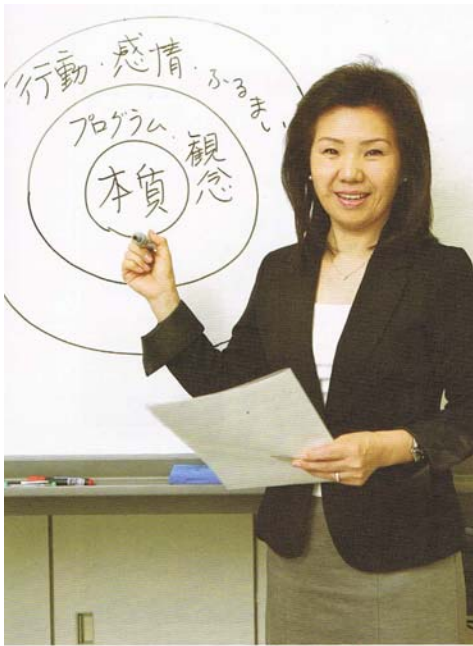 行動・感情・ふるまい
プログラム・観念
本質